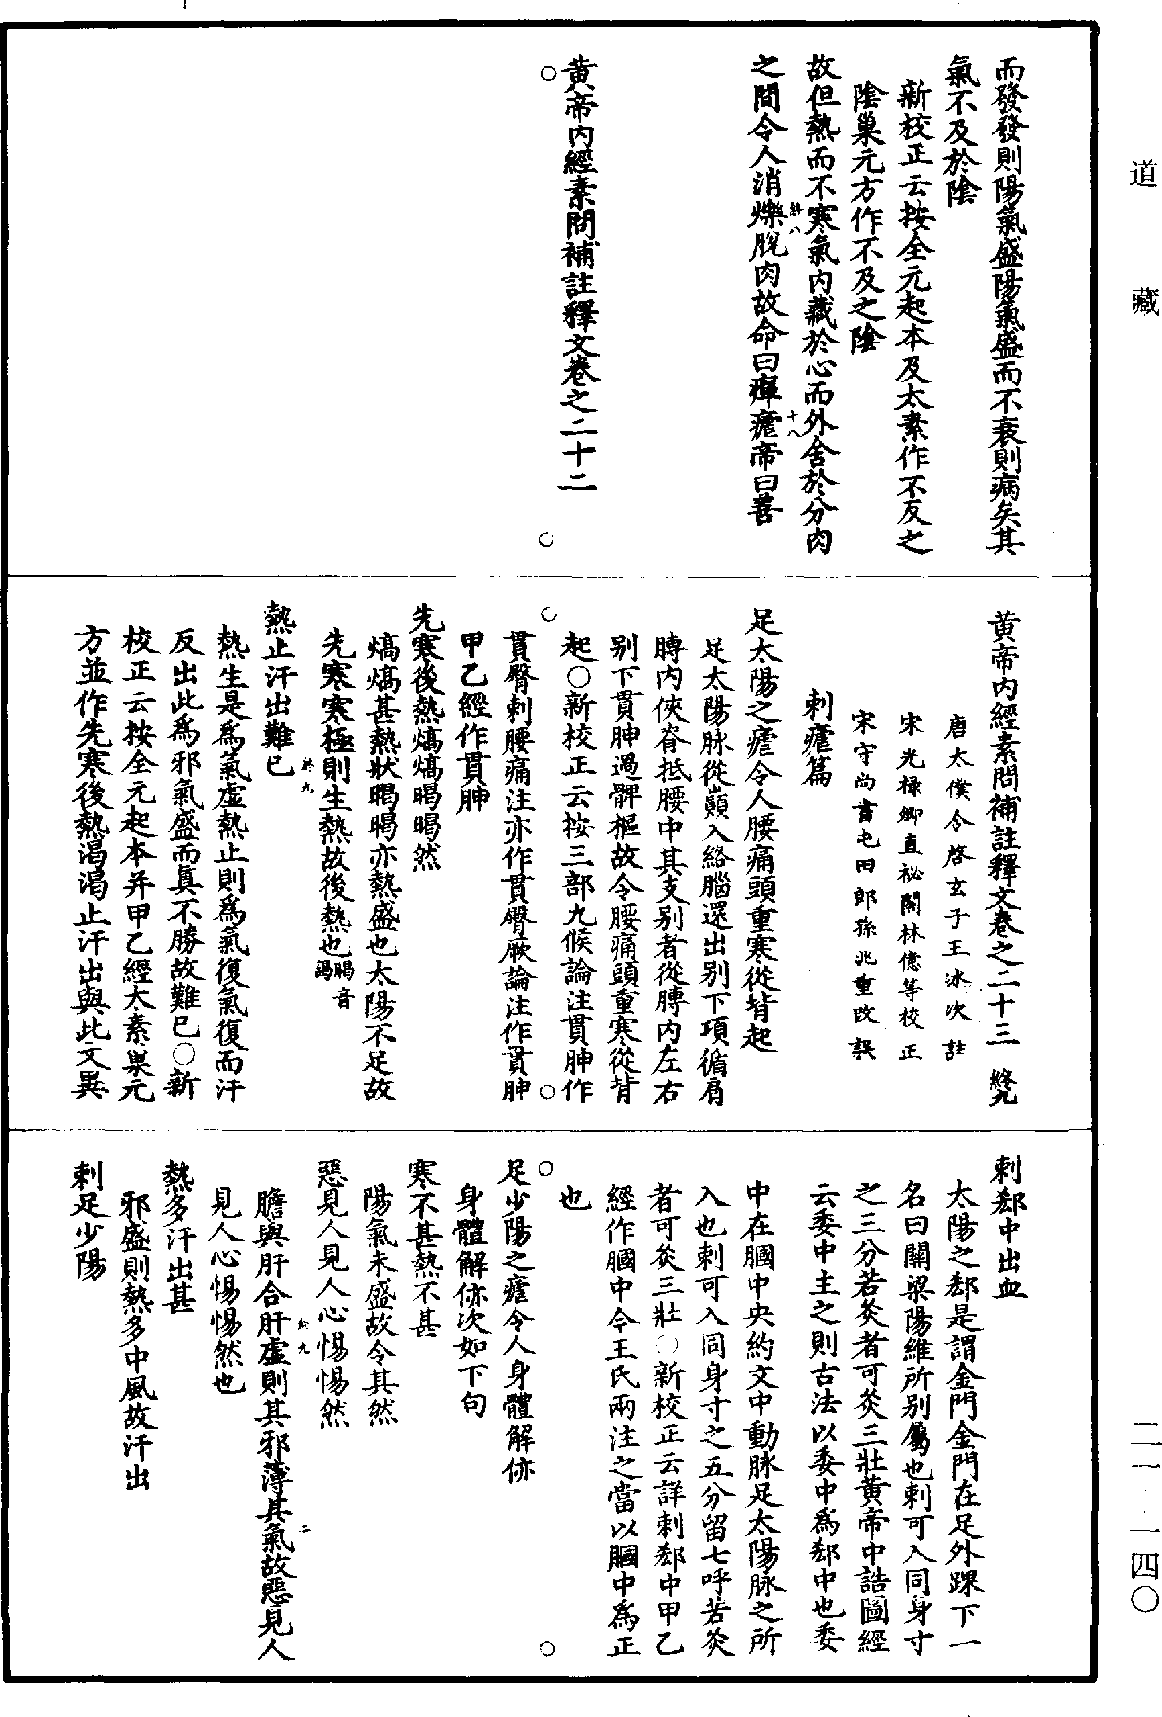 道藏
而發發則陽氣盛陽氣盛而不衰則病矣其
氣不及於陰
新校正云按全元起本及太素作不反之
陰巢元方作不及之陰
故但熱而不寒氣內藏於心而外舍於分肉
之間令人消爍脫肉故命曰癉瘧帝曰善
黃帝內經素問補註釋文卷之二十二
黃帝內經素問補註釋文卷之二十三 終九
唐太僕令啓玄子王冰次註
宋光祿卿直祕閣林億等校正
宋守尚書屯田郎孫兆重改誤
刺瘧篇
足太陽之瘧令人腰痛頭重寒從背起
足太陽脉從巔入絡腦還出別下項循肩
膊內俠脊抵腰中其支別者從膊內左右
別下貫胂過髀樞故令腰痛頭重寒從背
起○新校正云按三部九候論注貫胂作
貫臀刺腰痛注亦作貫臀厥論注作貫胂
甲乙經作貫胂
先寒後熱熇熇暍暍然
熇熇甚熱狀暍暍亦熱盛也太陽不足故
先寒寒極則生熱故後熱也暍音謁
熱止汗出難已
熱生是爲氣虛熱止則爲氣復氣復而汗
反出此爲邪氣盛而真不勝故難已○新
校正云按全元起本并甲乙經太素巢元
方並作先寒後熱渴渴止汗出與此文異
刺郄中出血
太陽之郄是謂金門金門在足外踝下一
名曰關梁陽維所別屬也刺可入同身寸
之三分若灸者可灸三壯黃帝中誥圖經
云委中主之則古法以委中爲郄中也委
中在膕中央約文中動脉足太陽脉之所
入也刺可入同身寸之五分留七呼若灸
者可灸三壯○新校正云詳刺郄中甲乙
經作膕中今王氏兩注之當以膕中爲正
也
足少陽之瘧令人身體解㑊
身體解㑊次如下句
寒不甚熱不甚
陽氣未盛故令其然
惡見人見人心惕惕然
膽與肝合肝虛則其邪薄其氣故惡見人
見人心惕惕然也
熱多汗出甚
邪盛則熱多中風故汗出
刺足少陽
二一·一四〇